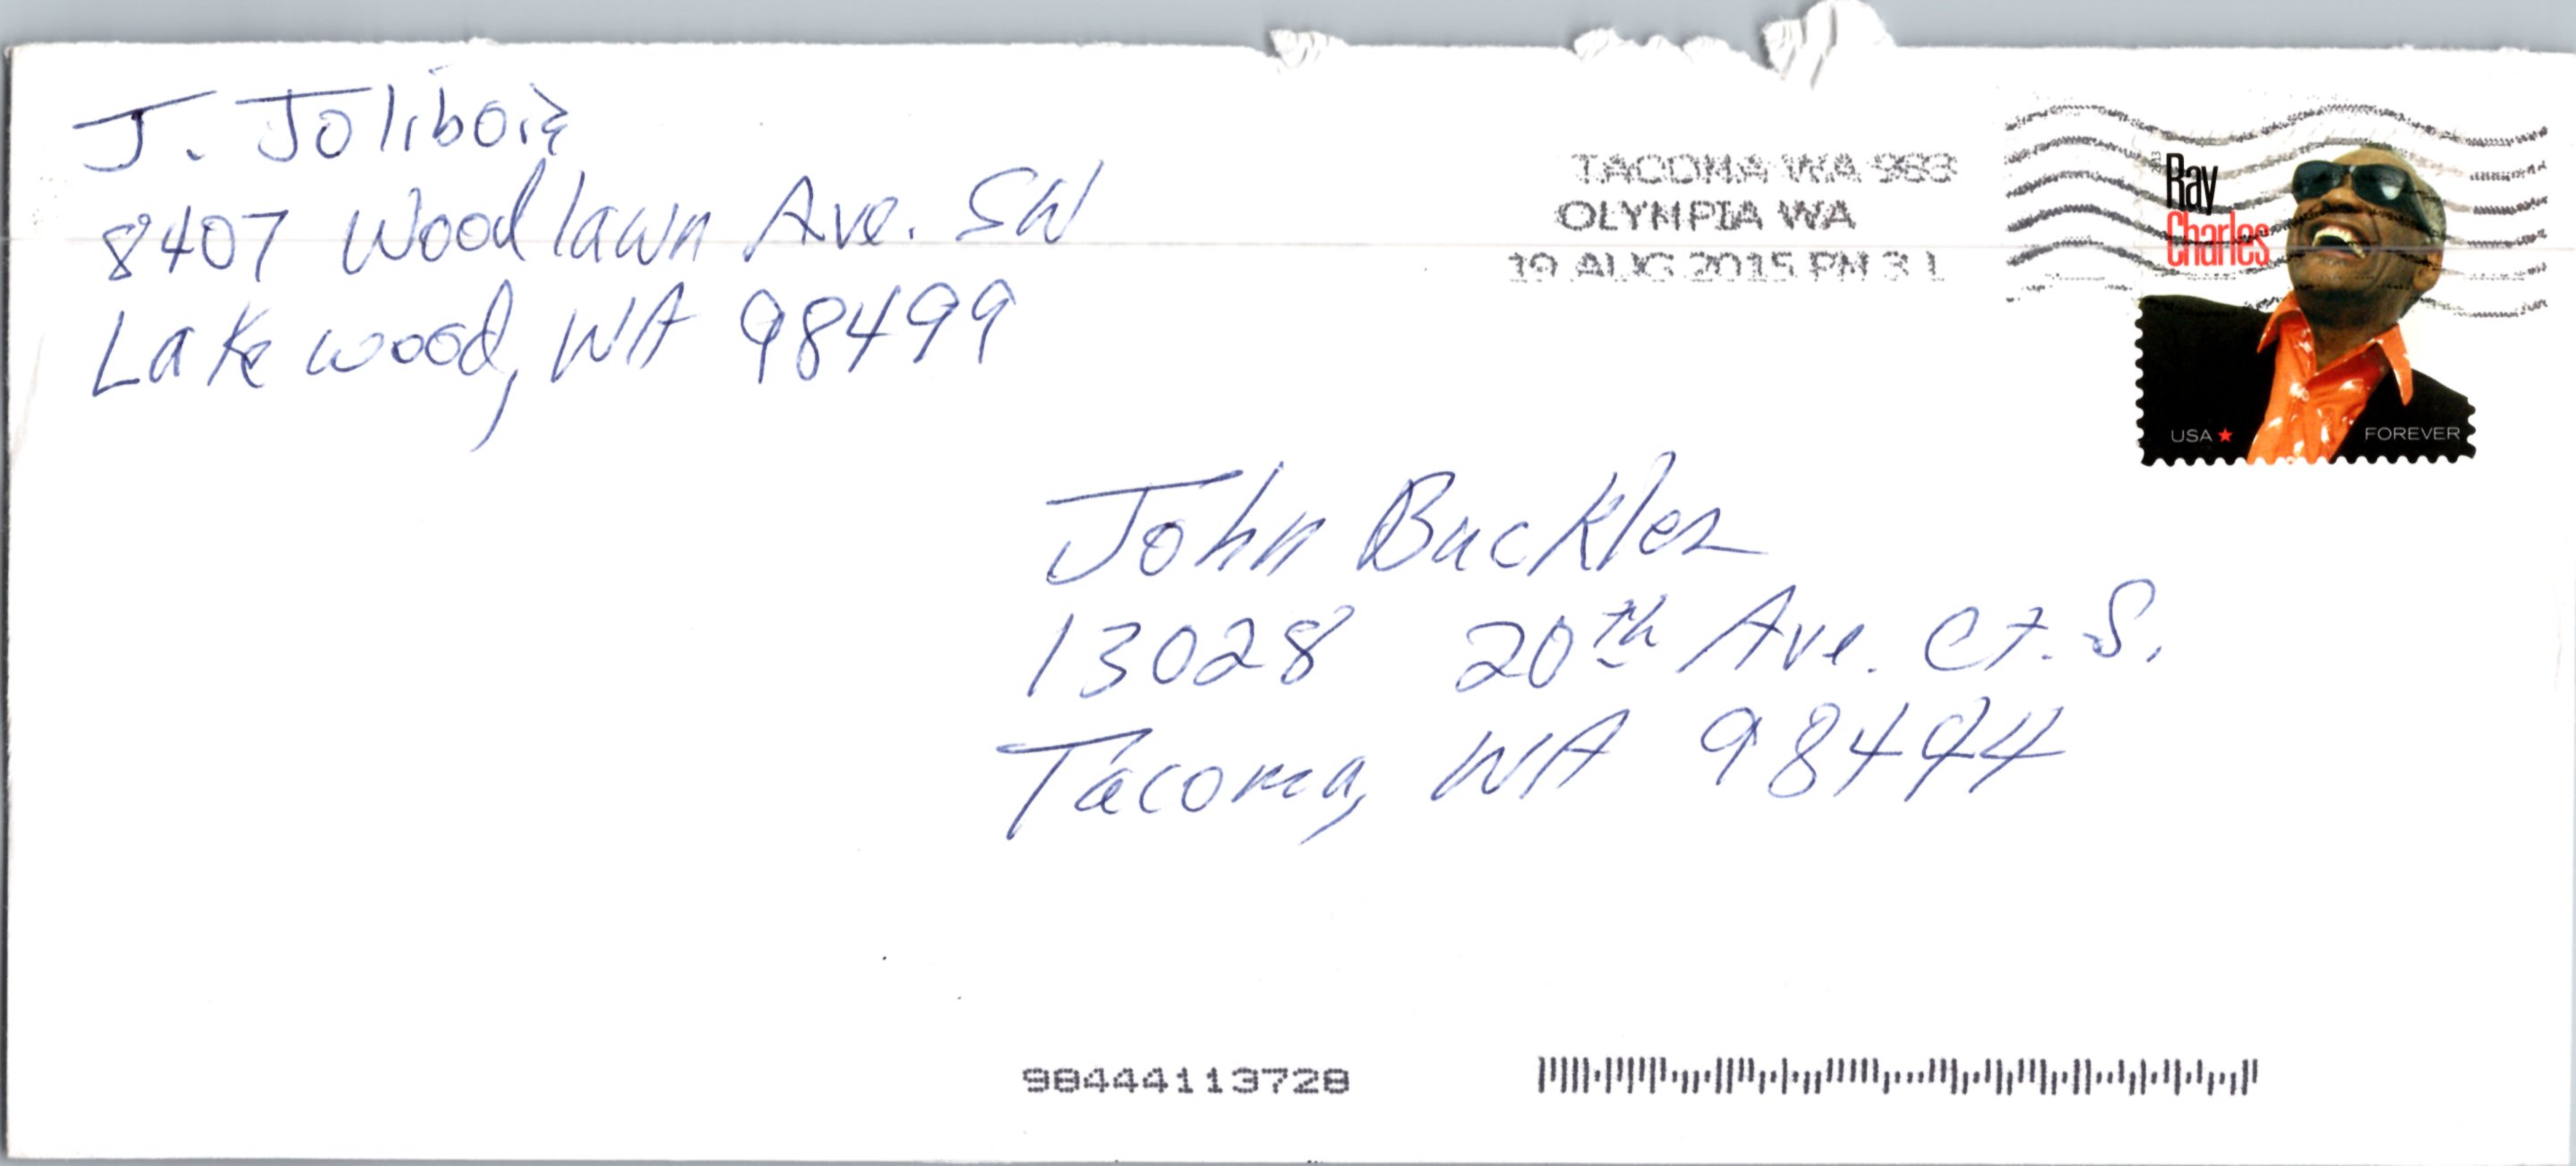 J. Jolibois
8407 Woodlawn Ave. SW
Lakewood, WA 98499
TACOMA WA 983
OLYMPIA WA
19 AUG 2015 PM 3 L
Ray
Charles
USA
FOREVER
John Buckles
13028 20th Ave. Ct. S.
Tacoma, WA 98444
98444113728